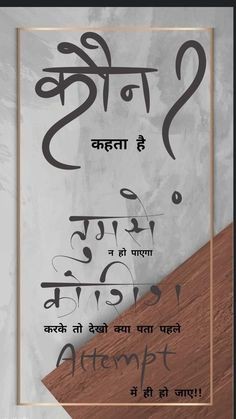 कौन ?
कहता है
तुमसे
न हो पाएगा
कोशिश
करके तो देखो क्या पता पहले
Attempt
में ही हो जाए!!